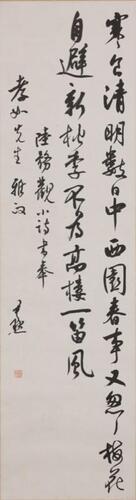 寒食清明數日中西園春事又怱怱梅花
自避新桃李不為高樓一笛風
陸務觀小詩書奉
孝如先生雅政
尹默